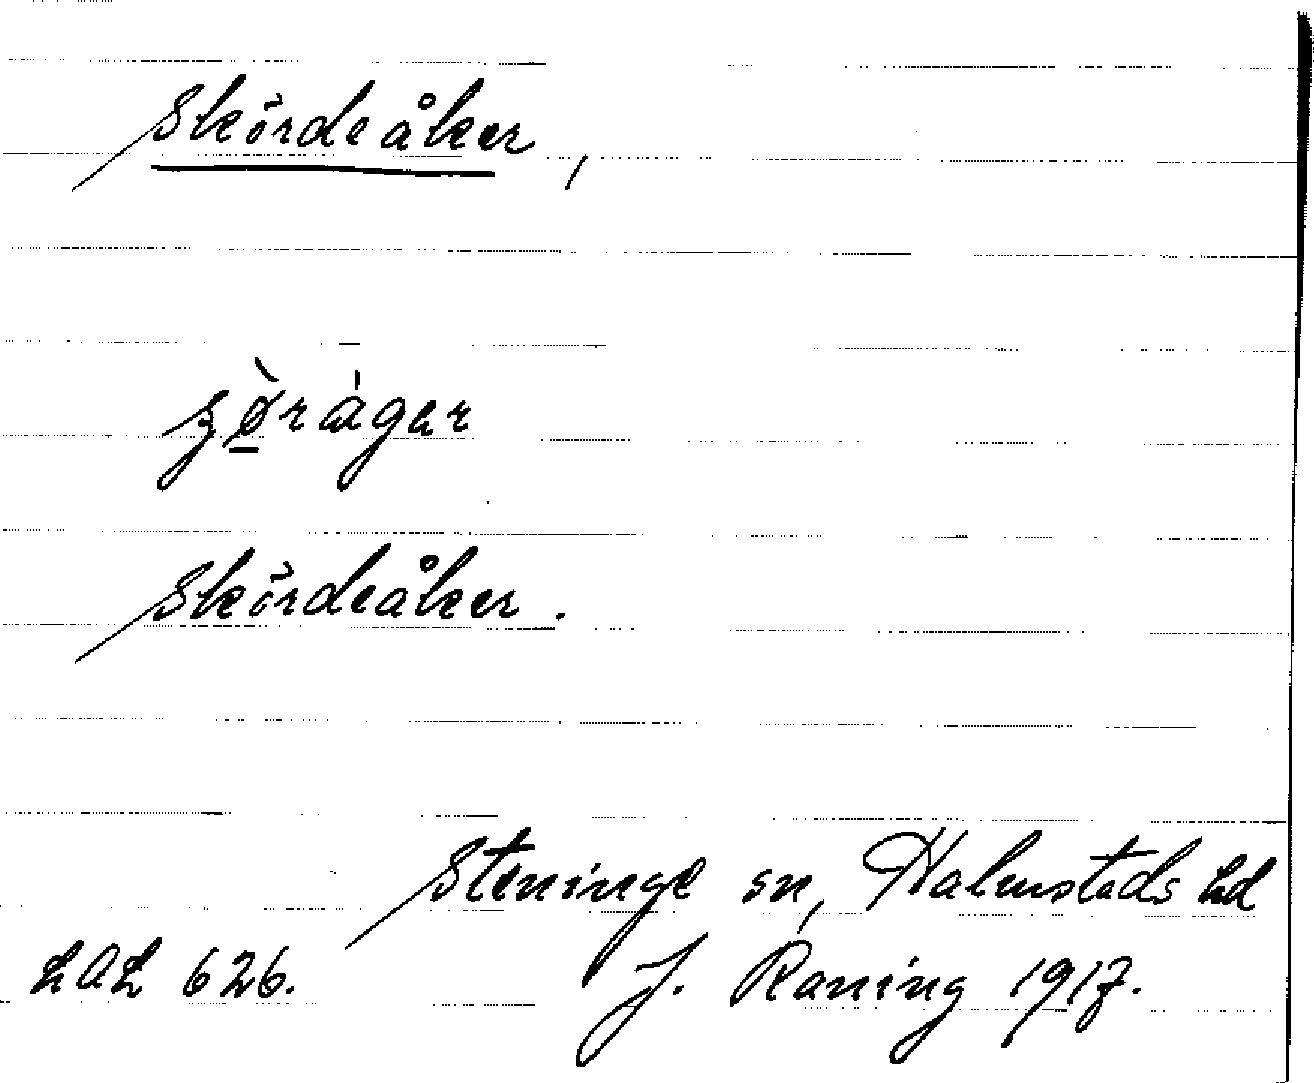 Skördeåker,
Skördeåker.
Steninge sn, Halmstads hd
LAL 626. J. Raning 1917.